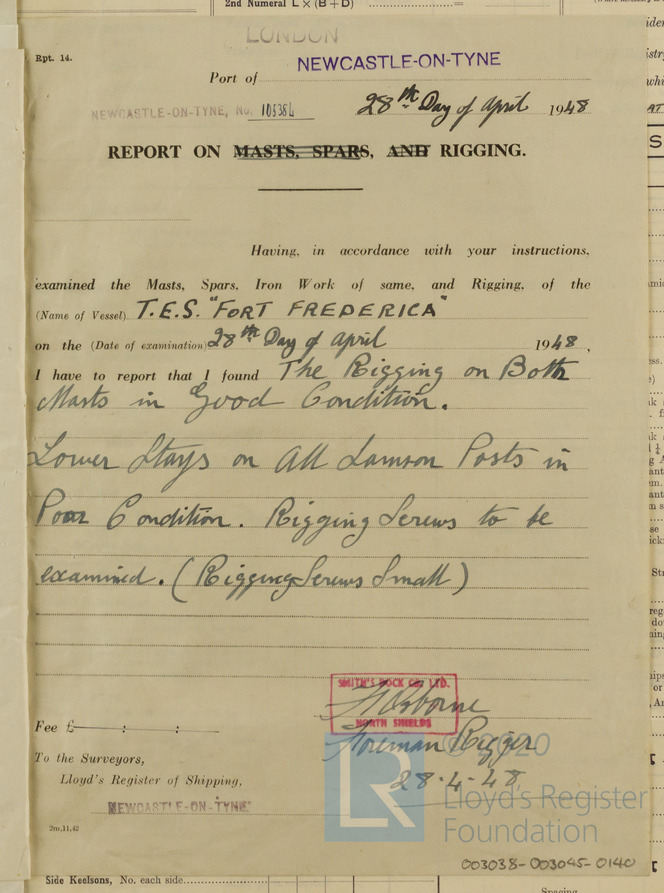 2nd Numeral L × (B + D)
LONDON
Rpt. 14.
Port of NEWCASTLE-ON-TYNE
NEWCASTLE-ON-TYNE, No. 105384
28th Day of April 1948
REPORT ON MASTS, SPARS, AND RIGGING.
Having, in accordance with your instructions,
examined the Masts, Spars, Iron Work of same, and Rigging, of the
(Name of Vessel) T.E.S. "FORT FREDERICA"
on the (Date of examination) 28th Day of April 1948,
I have to report that I found The Rigging on Both
Masts in Good Condition.
Lower Stays on All Samson Posts in
Poor Condition. Rigging Screws to be
examined. (Rigging Screws Small)
SMITH'S DOCK CO. LTD.
Osborne
NORTH SHIELDS
Fee £ : :
Foreman Rigger
© 2020
To the Surveyors,
28.4.48
Lloyd's Register of Shipping,
LR
Lloyd's Register
Foundation
NEWCASTLE-ON-TYNE
2m,11,42
003038-003045-0140
Side Keelsons, No. each side
Spacing